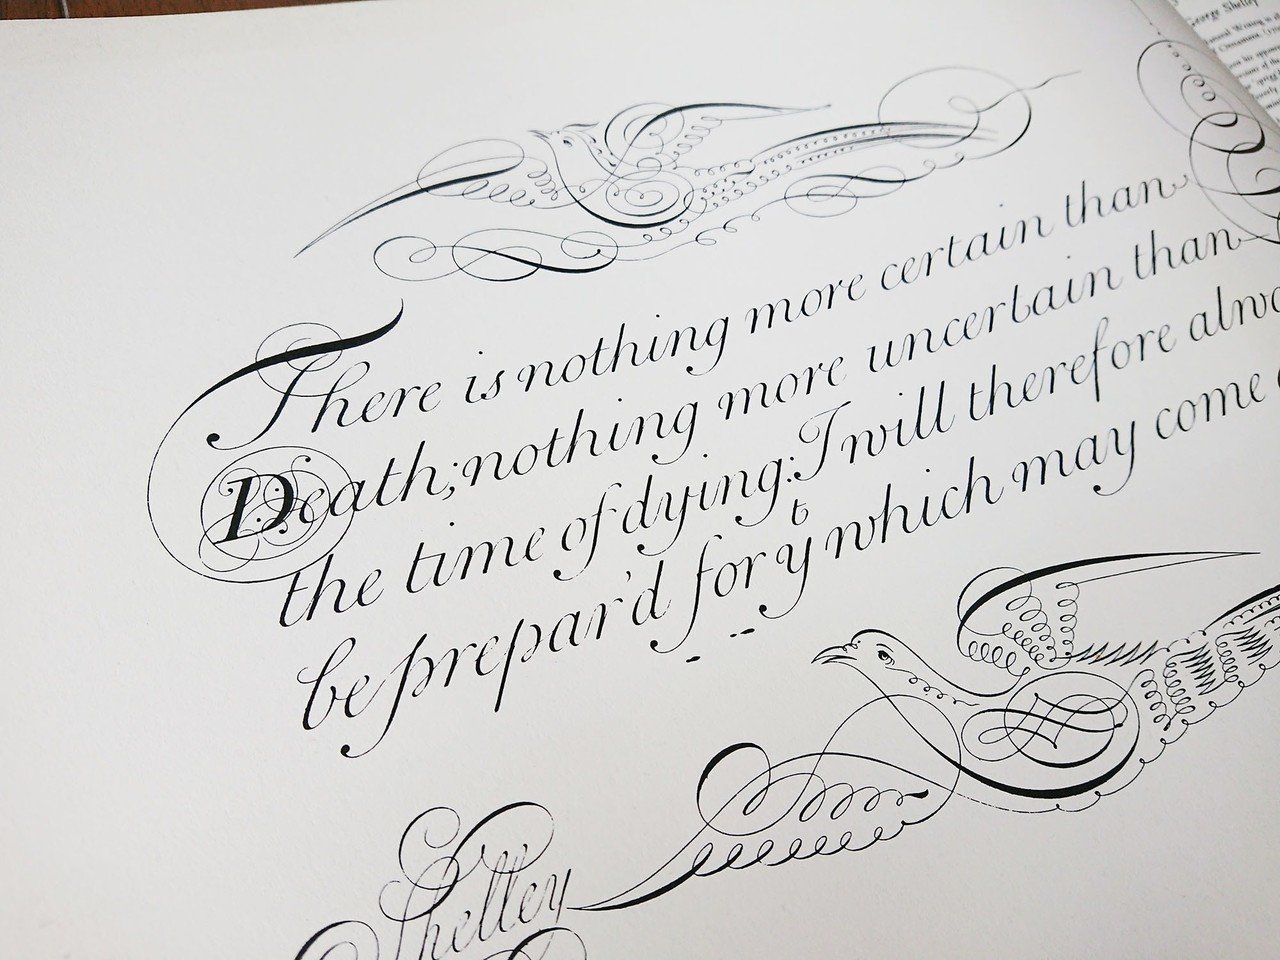 George Shelley
There is nothing more certain than
Death; nothing more uncertain than
the time of dying: I will therefore
be prepar'd for yᵗ which may come
Shelley